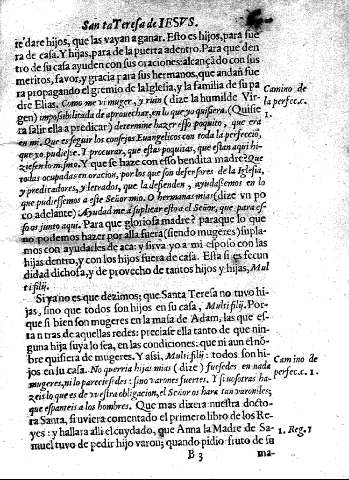 Santa Teresa de IESVS.
te dare hijos, que las vayan a ganar. Esto es hijos, para fue
ra de casa. Y hijas, para de la puerta adentro. Para que den
tro de su casa ayuden con sus oraciones: alcançādo con sus
meritos, favor, y gracia para sus hermanos, que andan fue
ra propagando el gremio de la Iglesia, y la familia de su pa
dre Elias. Como me vi muger, y ruin (dize la humilde Vir
gen) imposibilitada de aprovechar, en lo que yo quisiera. (Quisie
ra salir ella a predicar) determine hazer esso poquito, que era
en mi. Que es seguir los consejos Evangelicos con toda la perfecciō,
que yo pudiesse. Y procurar, que estas poquitas, que estan aqui hi-
ziessen lo mismo. Y que se haze con esso bendita madre? Que
todas ocupadas en oracion, por los que son defensores de la Iglesia,
y predicadores, y letrados, que la defienden, ayudassemos en lo
que pudiessemos a este Señor mio. O hermanas mias (dize vn po
co adelante) Ayudad me à suplicar esto a el Señor, que para es-
so os junto aqui. Para que gloriosa madre? paraque lo que
no podemos hazer por alla fuera (siendo mugeres) supla-
mos con ayudarles de aca: y sirva yo a mi esposo con las
hijas dentro, y con los hijos fuera de casa. Esta si es fecun
didad dichosa, y de provecho de tantos hijos, y hijas, Mul
ti filij.
Si ya no es que dezimos; que Santa Teresa no tuvo hi-
jas, sino que todos son hijos en su casa, Multi filij. Por-
que si bien son mugeres en la masa de Adam, las que es-
ta n tras de aquellas redes: preciase ella tanto de que nin-
guna hija suya lo sea, en las condiciones: que ni aun el nō-
bre quisiera de mugeres. Y assi, Multi filij: todos son hi-
jos en su casa. No querria hijas mias (dize) fuessedes en nada
mugeres, ni lo pareciessedes: sino varones fuertes. Y si vosotras ha-
zeis lo que es de vuestra obligacion, el Señor os hara tan varoniles;
que espanteis a los hombres. Que mas dixera nuestra docto-
ra Santa, si uviera comentado el primero libro de los Re-
yes: y hallara alli el cuydado, que Anna la Madre de Sa-
muel tuvo de pedir hijo varon; quando pidio fruto de su
B 3
ma-
Camino de
la perfec. c.
1.
Camino de
perfec. c. 1.
1. Reg. 1